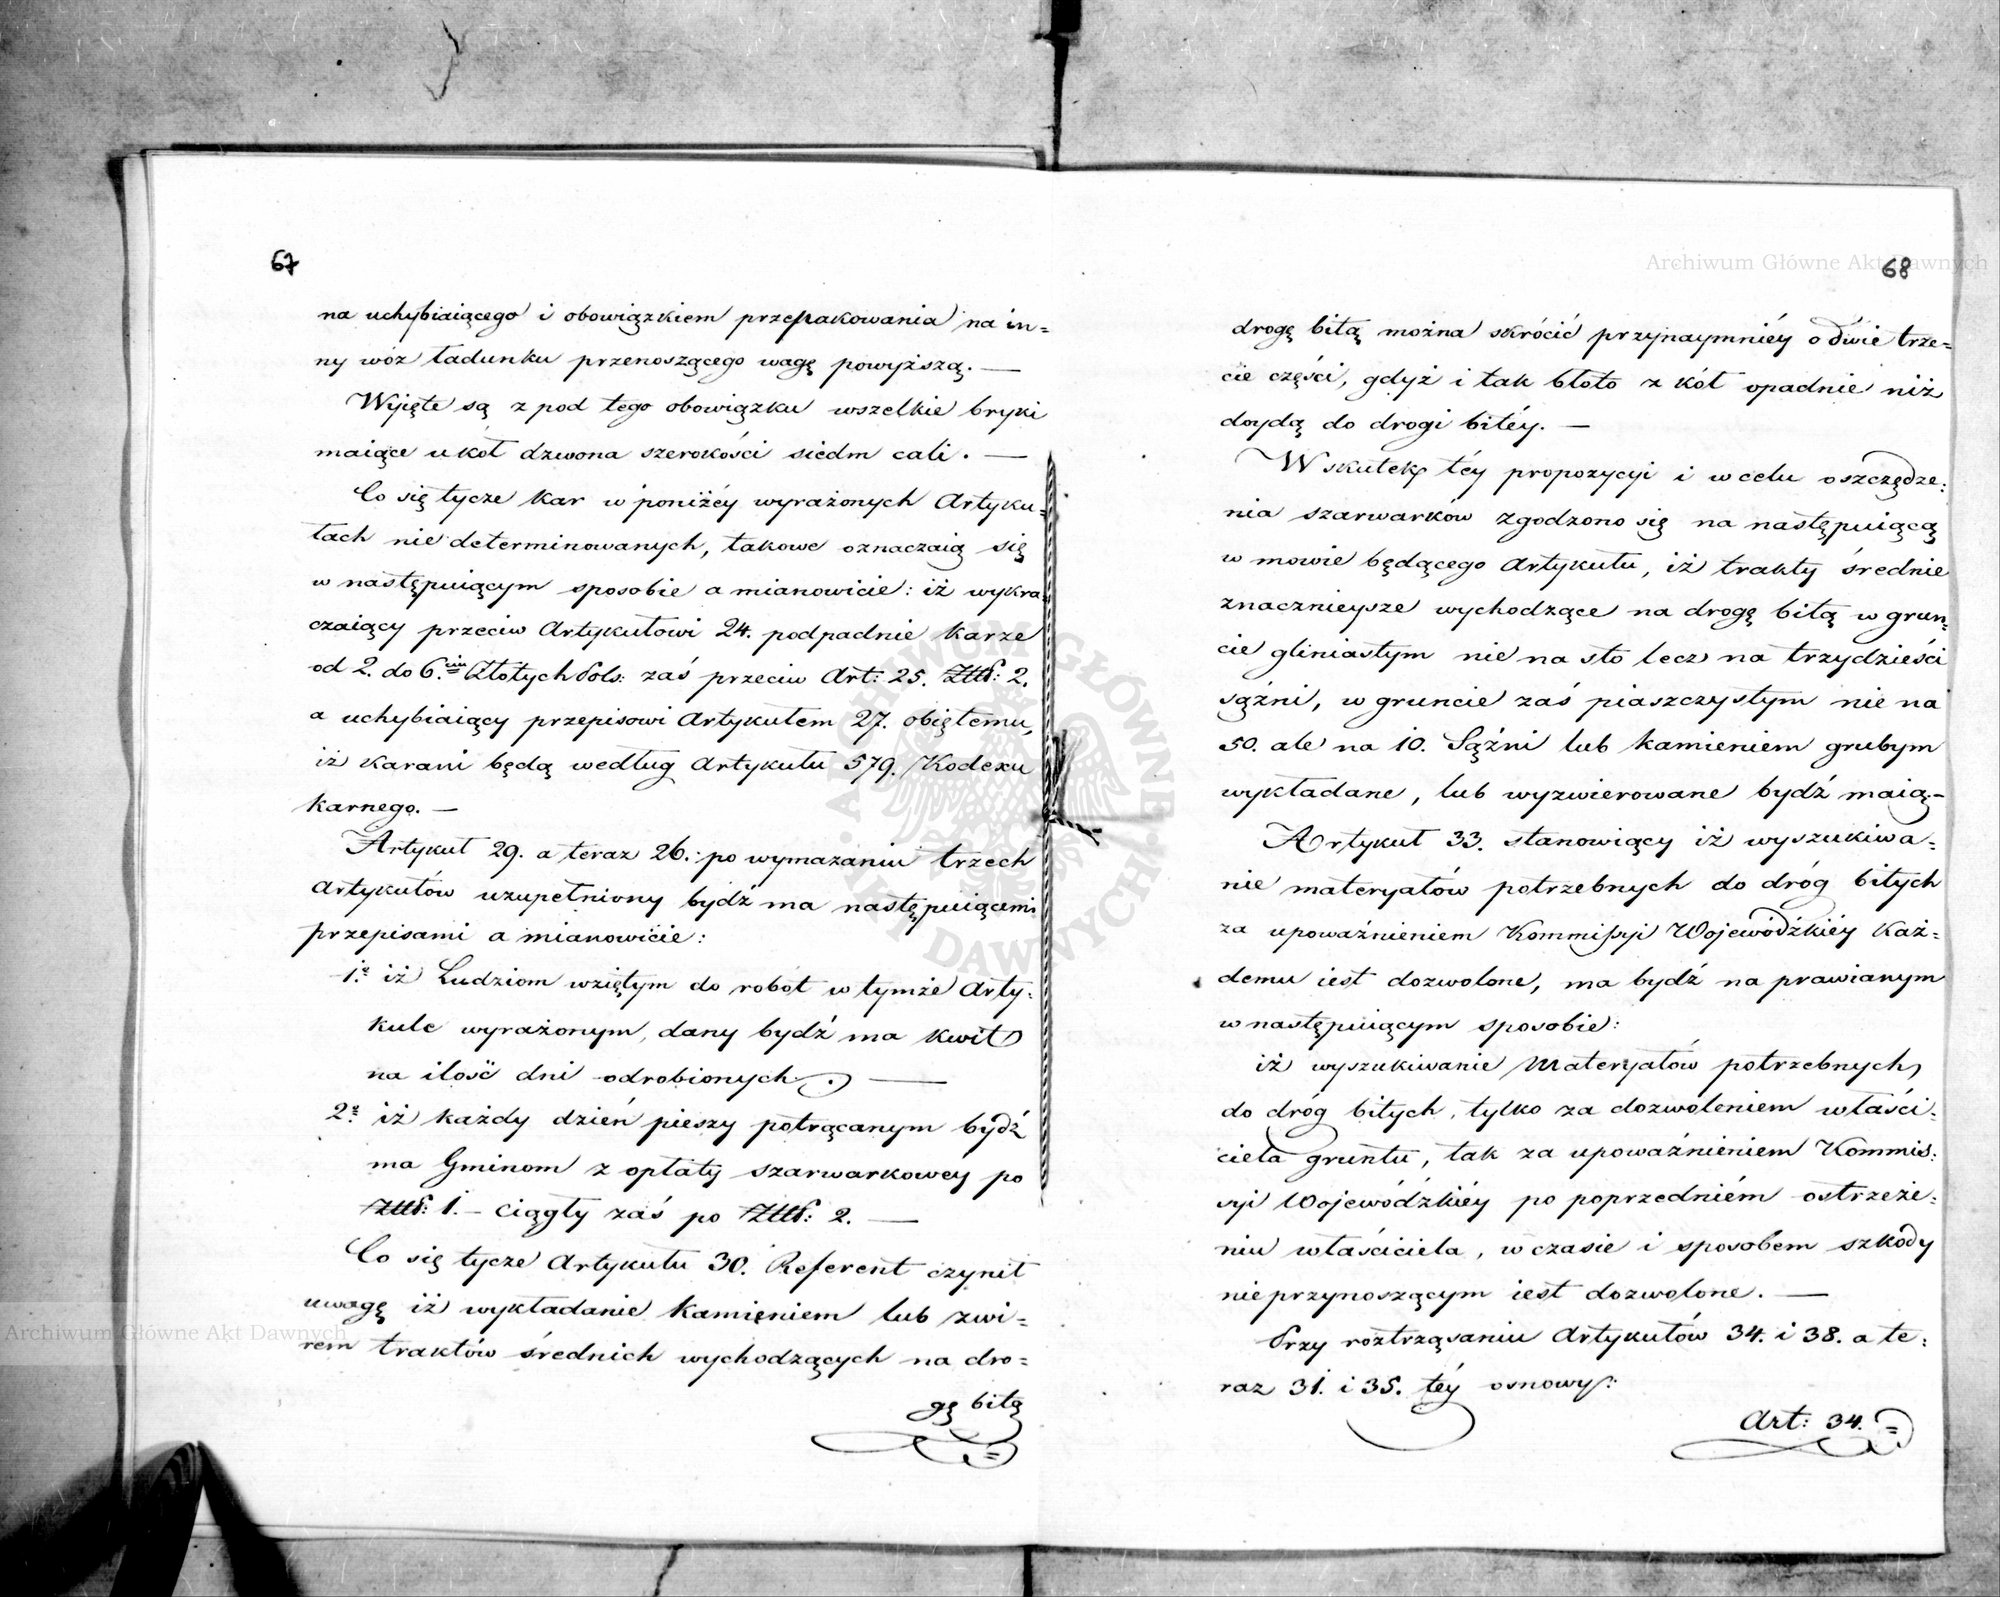 67
na uchybiaiącego i obowiązkiem przepakowania na in=
ny wóz ładunku przenoszącego wagę powyższą. —
Wyięte są z pod tego obowiązku wszelkie bryki
maiące u kół dzwona szerokości siedm cali. —
Co się tycze kar w poniżéy wyrażonych Artyku=
łach nie determinowanych, takowe oznaczaią się
w następuiącym sposobie a mianowicie: iż wykra=
czaiący przeciw Artykułowi 24. podpadnie karze
od 2. do 6.ciu Złotych Pols: zaś przeciw Art: 25. Złł: 2.
a uchybiaiący przepisowi Artykułem 27. obiętemu,
iż karani będą według Artykułu 579. Kodexu
karnego. —
Artykuł 29. a teraz 26.: po wymazaniu trzech
Artykułów uzupełniony bydź ma następuiącemi
przepisami a mianowicie:
1.° iż Ludziom wziętym do robót w tymże Arty:
kule wyrażonym, dany bydź ma kwit
na ilość dni odrobionych. —
2.° iż każdy dzień pieszy potrącanym bydź
ma Gminom z opłaty szarwarkowey po
Złł: 1. – ciągły zaś po Złł: 2. —
Co się tycze Artykułu 30. Referent czynił
uwagę iż wykładanie kamieniem lub żwi=
rem traktów średnich wychodzących na dro=
gę bitą
=
68
drogę bitą można skrócić przynaymniéy o dwie trze=
cie części, gdyż i tak błoto z kół opadnie niż
doydą do drogi bitéy. —
W skutek téy propozycyi i w celu oszczędze:
nia szarwarków zgodzono się na następuiącą
w mowie będącego Artykułu, iż trakty średnie
znacznieysze wychodzące na drogę bitą w grun=
cie gliniastym nie na sto lecz na trzydzieści
sążni, w gruncie zaś piaszczystym nie na
50. ale na 10. Sążni lub kamieniem grubym
wykładane, lub wyzwierowane bydź maią. –
Artykuł 33. stanowiący iż wyszukiwa=
nie materyałów potrzebnych do dróg bitych
za upoważnieniem Kommissyi Wojewódzkiéy każ=
demu iest dozwolone, ma bydź na prawianym
w następuiącym sposobie:
iż wyszukiwanie Materyałów potrzebnych
do dróg bitych, tylko za dozwoleniem właści:
ciela gruntu, tak za upoważnieniem Kommis:
syi Wojewódzkiéy po poprzedniém ostrzeże:
niu właściciela, w czasie i sposobem szkody
nieprzynoszącym iest dozwolone. —
Przy roztrząsaniu Artykułów 34. i 38. a te:
raz 31. i 35. téy osnowy:
Art: 34.
=
Archiwum Główne Akt Dawnych
Archiwum Główne Akt Dawnych
· ARCHIWUM GŁÓWNE · AKT DAWNYCH